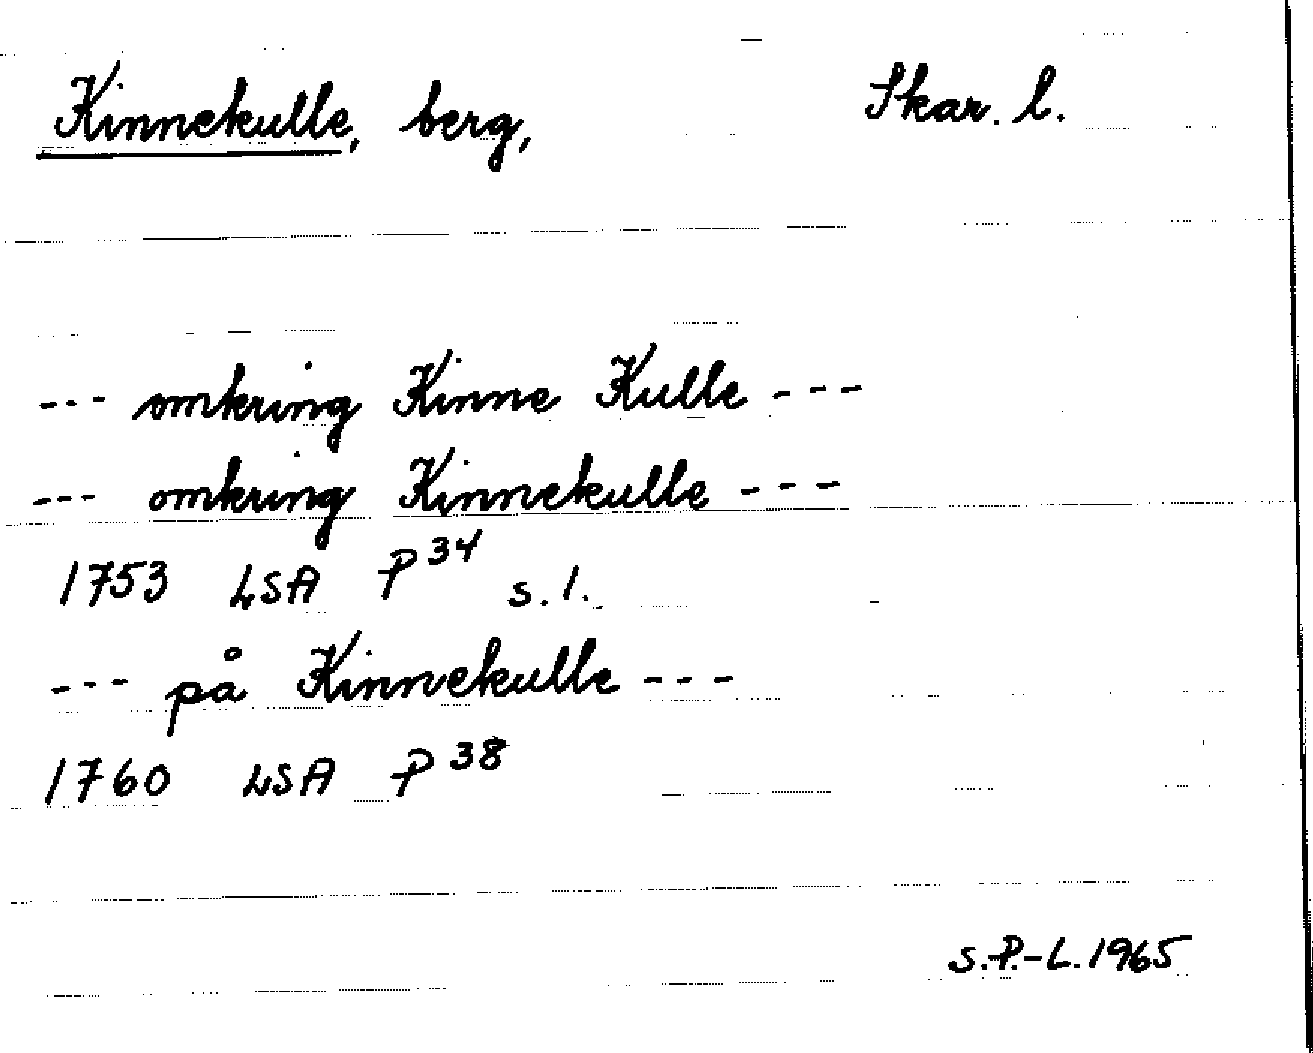 Kinnekulle, berg, Skar. l.
--- omkring Kinne Kulle ---
--- omkring Kinnekulle ---
1753 LSA P 34 s. 1.
--- på Kinnekulle ---
1760 LSA P 38
S.P.-L. 1965